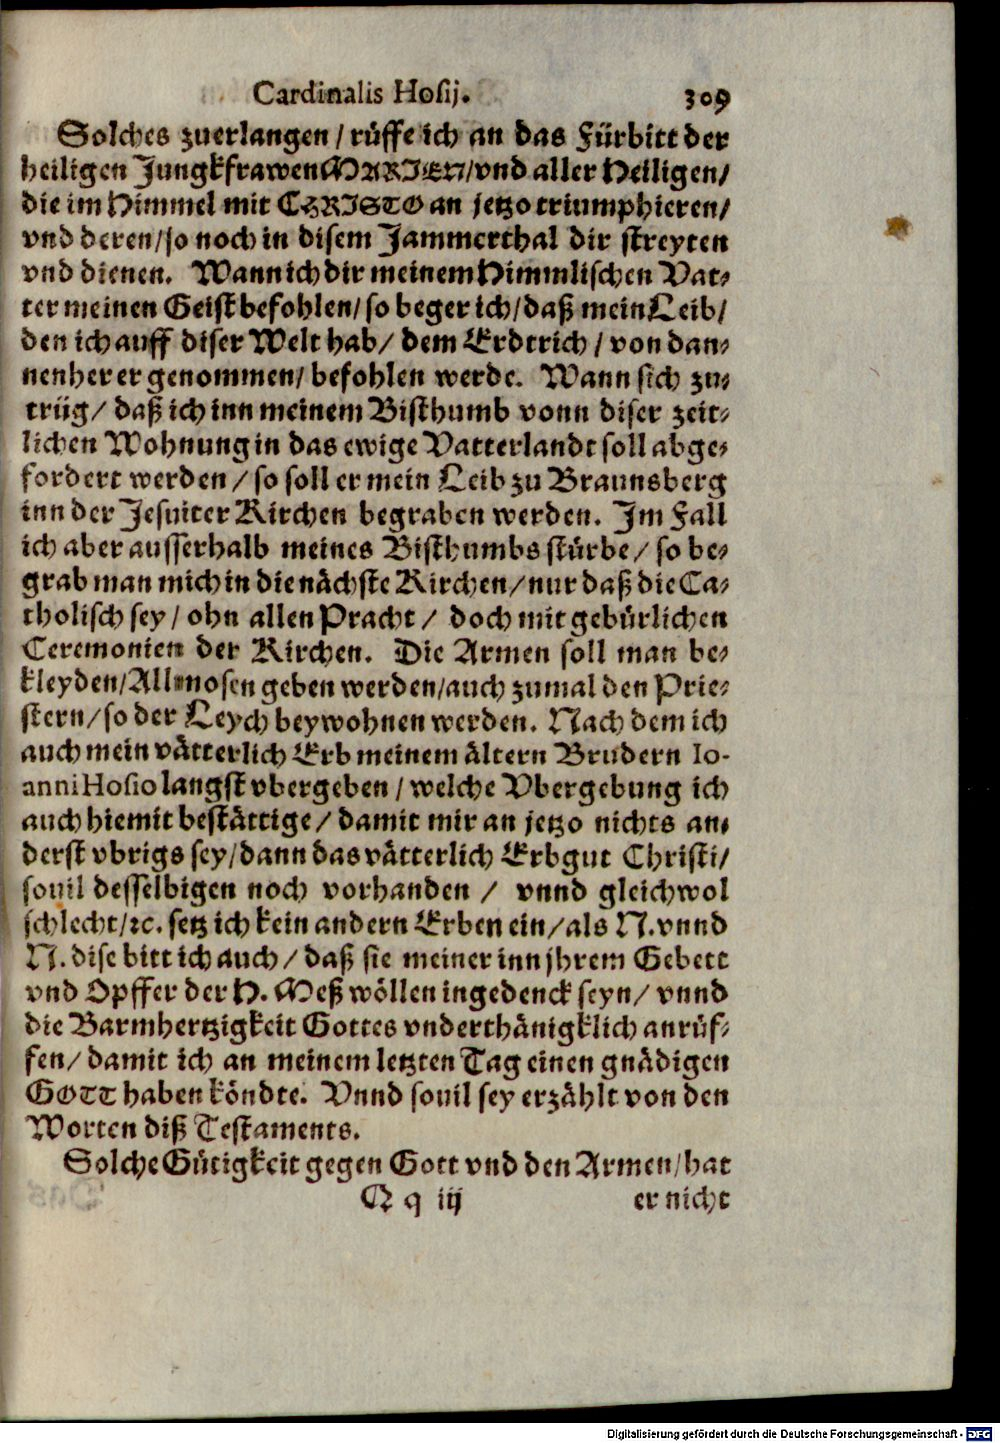 Cardinalis Hosij. 309
Solches zuerlangen / rüffe ich an das Fürbitt der
heiligen Jungkfrawen MARIEN / vnd aller Heiligen /
die im Himmel mit CHRISTO an jetzo triumphieren /
vnd deren / so noch in disem Jammerthal dir streyten
vnd dienen. Wann ich dir meinem Himmlischen Vat-
ter meinen Geist befohlen / so beger ich / daß mein Leib /
den ich auff diser Welt hab / dem Erdtrich / von dan-
nenher er genommen / befohlen werde. Wann sich zu-
trüg / daß ich inn meinem Bisthumb vonn diser zeit-
lichen Wohnung in das ewige Vatterlandt soll abge-
fordert werden / so soll er mein Leib zu Braunsberg
inn der Jesuiter Kirchen begraben werden. Im Fall
ich aber ausserhalb meines Bisthumbs stürbe / so be-
grab man mich in die nächste Kirchen / nur daß die Ca-
tholisch sey / ohn allen Pracht / doch mit gebürlichen
Ceremonien der Kirchen. Die Armen soll man be-
kleyden / Allmosen geben werden / auch zumal den Prie-
stern / so der Leych beywohnen werden. Nach dem ich
auch mein vätterlich Erb meinem ältern Brudern Io-
anni Hosio langst vbergeben / welche Vbergebung ich
auch hiemit bestättige / damit mir an jetzo nichts an-
derst vbrigs sey / dann das vätterlich Erbgut Christi /
souil desselbigen noch vorhanden / vnnd gleichwol
schlecht / ꝛc. setz ich kein andern Erben ein / als N. vnnd
N. dise bitt ich auch / daß sie meiner inn jhrem Gebett
vnd Opffer der H. Meß wöllen ingedenck seyn / vnnd
die Barmhertzigkeit Gottes vnderthänigklich anrüf-
fen / damit ich an meinem letzten Tag einen gnädigen
GOTT haben köndte. Vnnd souil sey erzählt von den
Worten diß Testaments.
Solche Gütigkeit gegen Gott vnd den Armen / hat
Q q iij er nicht
Digitalisierung gefördert durch die Deutsche Forschungsgemeinschaft - DFG